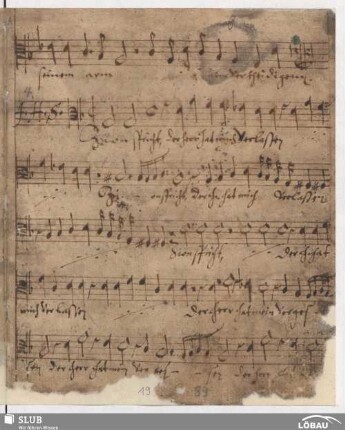 seinem arm
Zion spricht, der herr hat mich verlassen
Zion spricht der herr hat mich verlassen
Zion spricht, der herr hat
mich verlassen der herr hat mein verges-
sen der herr hat mein verges- sen der herr
19 89
SLUB
Wir führen Wissen.
LÖBAU